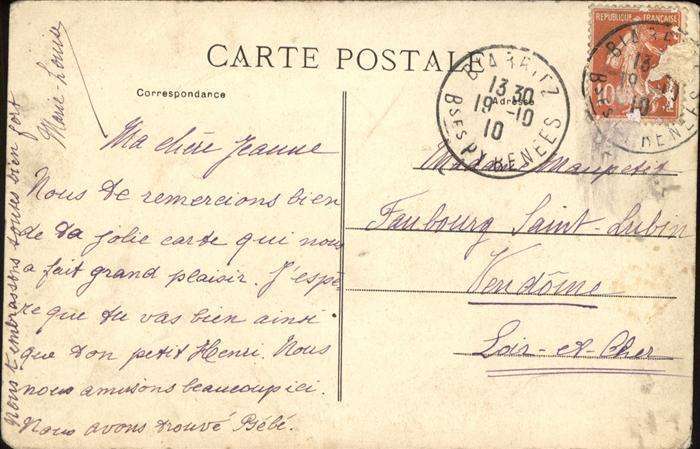 CARTE POSTALE
Correspondance
Adresse
REPUBLIQUE FRANÇAISE
10
BIARRITZ
13 30
19 -10
10
BSES PYRENEES
BIARR
13
19 -10
10
BSES PYRENEES
Ma chère Jeanne
Nous te remercions bien
de ta jolie carte qui nous
a fait grand plaisir. J'espè-
re que tu vas bien ainsi
que ton petit Henri. Nous
nous amusons beaucoup ici.
Nous avons trouvé Bébé.
Nous t'embrassons toutes bien fort
Marie-Louise
Madame Maupetit
Faubourg Saint-Lubin
Vendôme
Loir-et-Cher